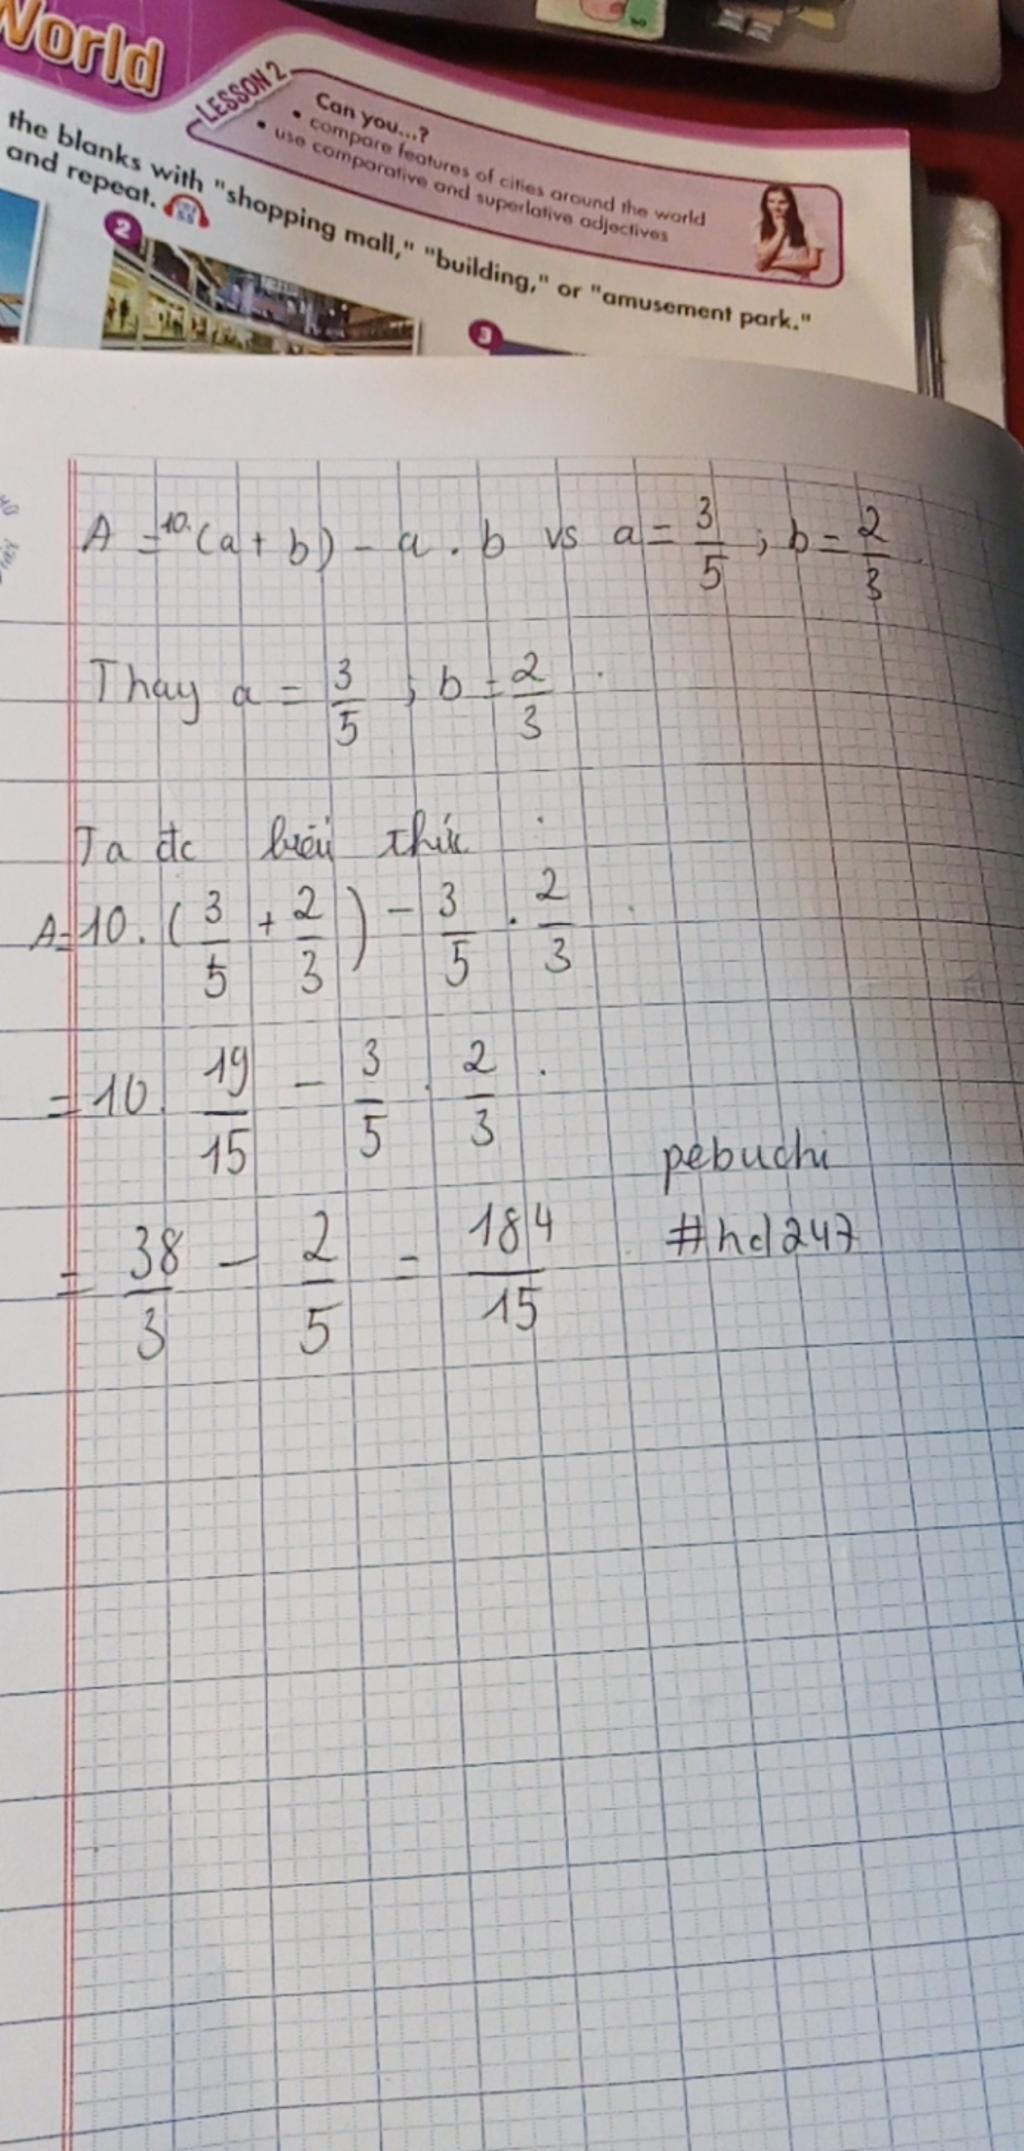 World
LESSON 2
Can you...?
• compare features of cities around the world
• use comparative and superlative adjectives
the blanks with "shopping mall," "building," or "amusement park."
and repeat.
2
3
A = 10.(a + b) - a . b vs a = 3/5 ; b = 2/3
Thay a = 3/5 ; b = 2/3
Ta đc biểu thức :
A = 10 . (3/5 + 2/3) - 3/5 . 2/3
= 10 . 19/15 - 3/5 . 2/3
= 38/3 - 2/5 = 184/15
pebuchi
#hd247